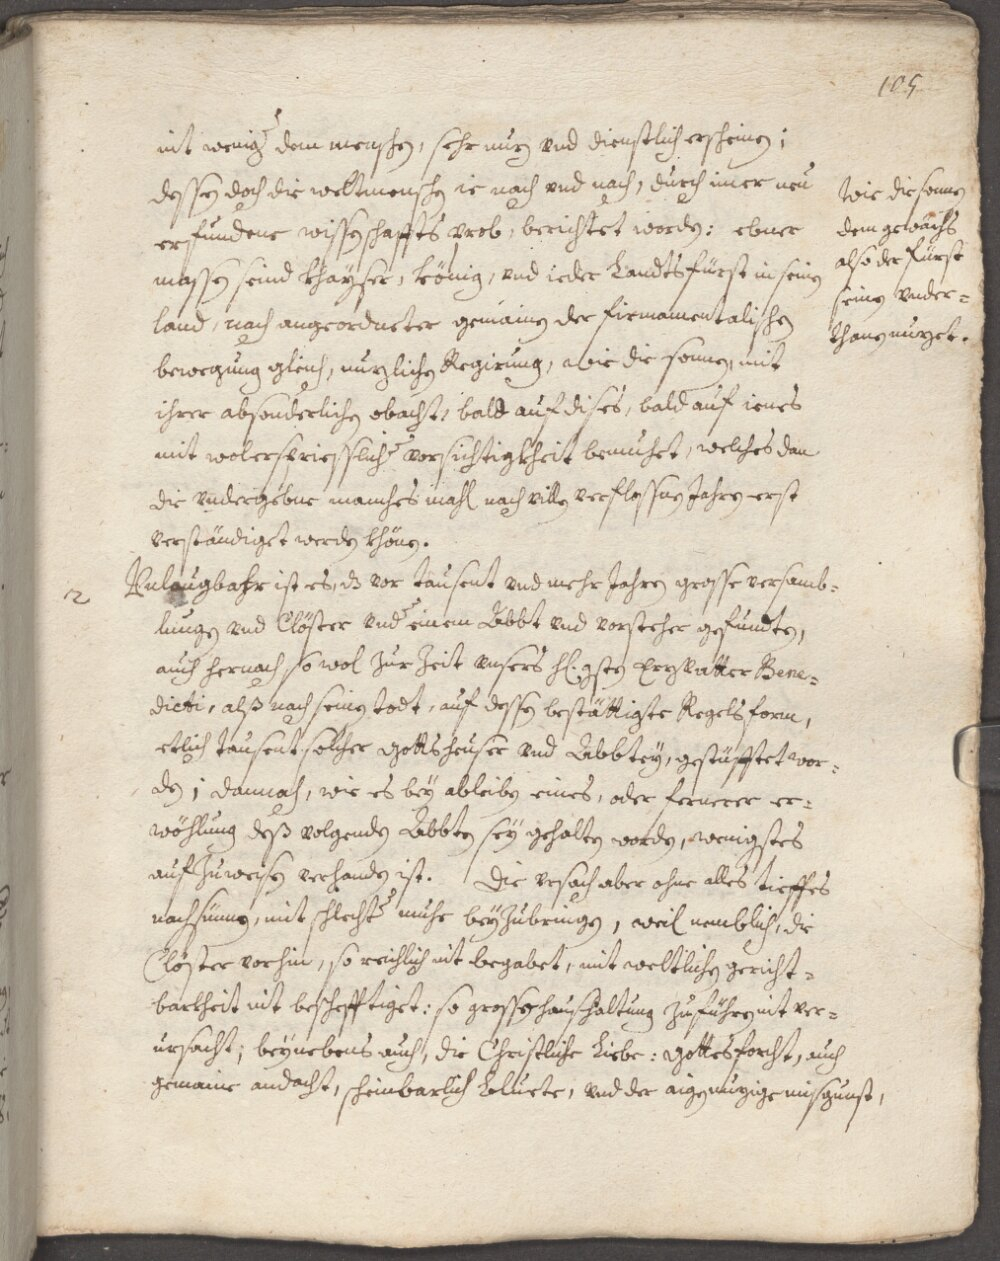 105
nit weniger dem menschen, sehr nuz vnd dienstlich erscheinen;
dessen doch die weltmenschen ie nach vnd nach, durch imer neu
erfundene wissenschaffts prob, berichtet worden: ebner
massen seind khayser, könig, vnd ieder Landtsfürst in seinem
land, nach angeordneter gemainer der firmamentalischen
bewegung gleich, nuzlichen Regirung, wie die sonnen, mit
ihrer absonderlichen obacht, bald auf dises, bald auf ienes
mit wolersprießlicher vorsichtigkheit bemühet, welches dan
die vndergebne manches mahl nach villen verflossnen Jahren erst
verständiget werden khönen.
Wie die sonnen
dem gewächs
also der Fürst
seinen vnder-
thanen nuzet.
2 Vnlaugbahr ist es, dz vor tausent vnd mehr Jahren grosse versamb-
lungen vnd Clöster vnder einem Abbt vnd vorsteher gefundten,
auch hernach so wol zur Zeit vnsers hl: gsten Erzvatter Bene-
dicti, alß nach seinem todt, auf dessen bestättigte Regelsform,
etlich tausent solcher gottsheuser vnd Abbteyen, gestüfftet wor-
den; dannoch, wie es bey ableiben eines, oder fernerer er-
wöhlung deß volgenden Abbten sey gehalten worden, wenigstes
aufzuweisen verhanden ist. Die vrsach aber ohne alles tieffes
nachsünnen, mit schlechter mühe beyzubringen, weil nemblich, die
Clöster vorhin, so reichlich nit begabet, mit weltlichen gericht-
barkheit nit beschefftiget: so grosse haushaltung zuführen nit ver-
ursacht; beynebens auch, die Christliche Liebe: gottesforcht, auch
gemaine andacht, scheinbarlich bluete, vnd der aigennuzige misgunst,